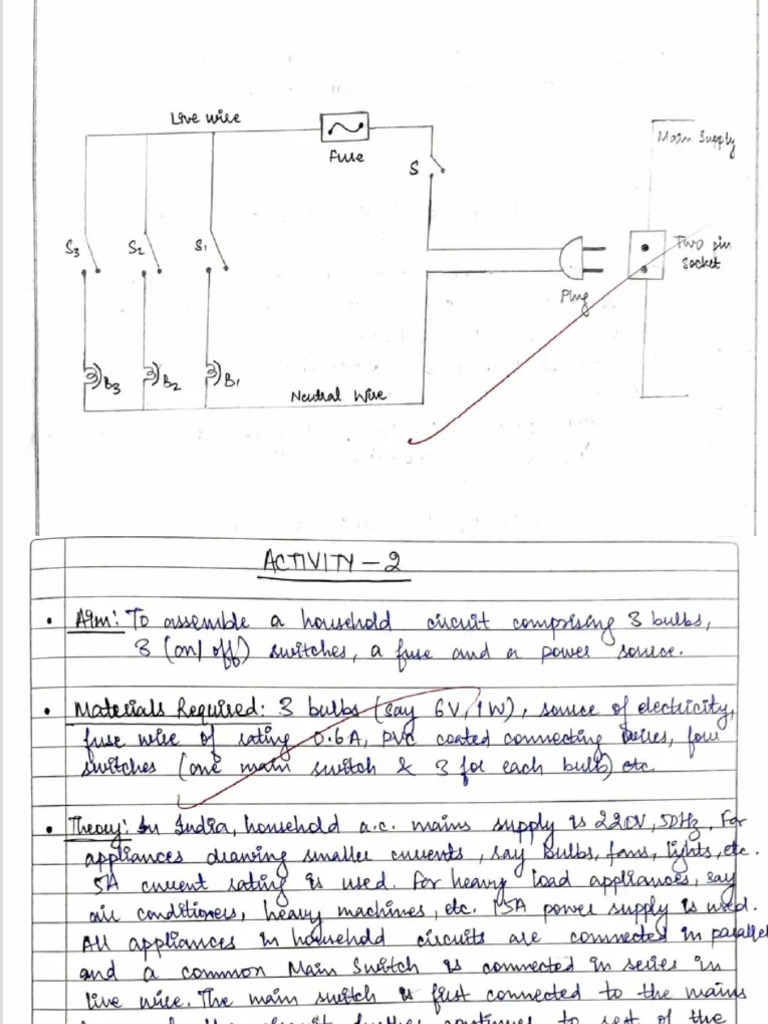 Live wire
Fuse
S
Main Supply
S3
S2
S1
Two pin
socket
Plug
B3
B2
B1
Neutral Wire
ACTIVITY - 2
• Aim: To assemble a household circuit comprising 3 bulbs,
3 (on/off) switches, a fuse and a power source.
• Materials Required: 3 bulbs (say 6V, 1W), source of electricity,
fuse wire of rating 0.6A, PVC coated connecting wires, four
switches (one main switch & 3 for each bulb) etc.
• Theory: In India, household a.c. mains supply is 220V, 50Hz. For
appliances drawing smaller currents, say bulbs, fans, lights, etc.
5A current rating is used. For heavy load appliances, say
air conditioners, heavy machines, etc. 15A power supply is used.
All appliances in household circuits are connected in parallel
and a common Main Switch is connected in series in
live wire. The main switch is first connected to the mains
circuit further continues to rest of the